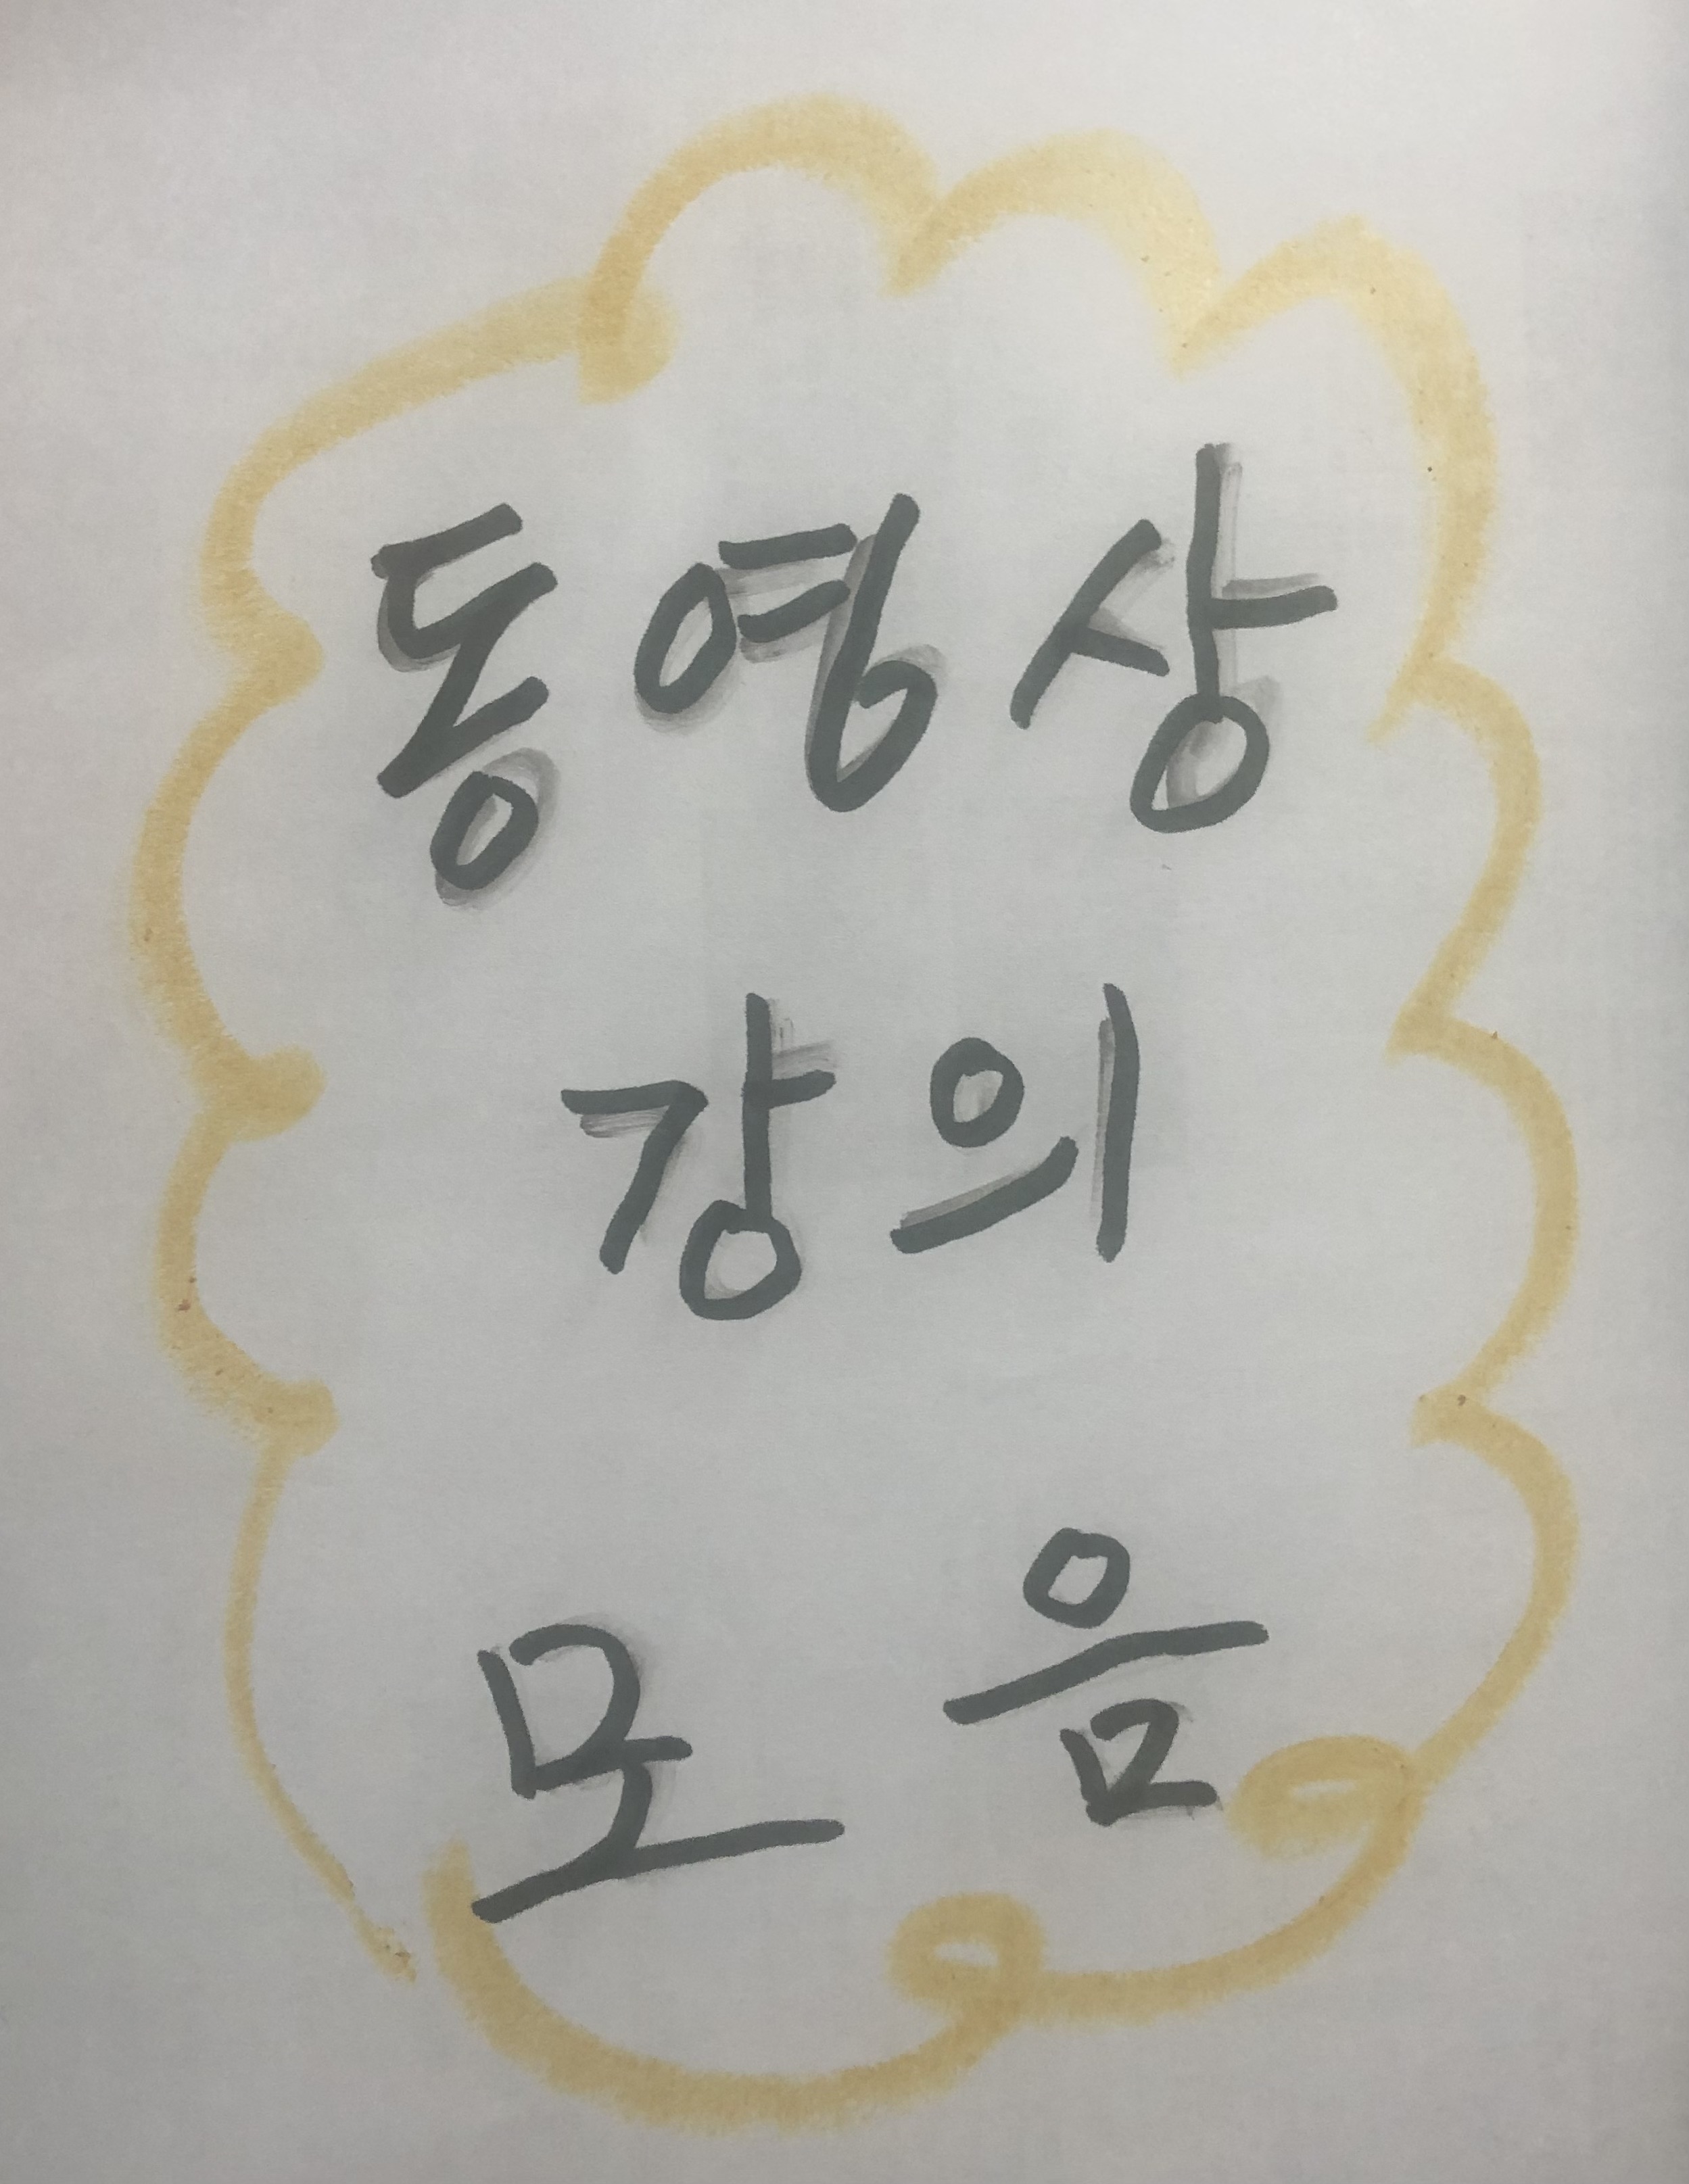 동영상
강의
모음